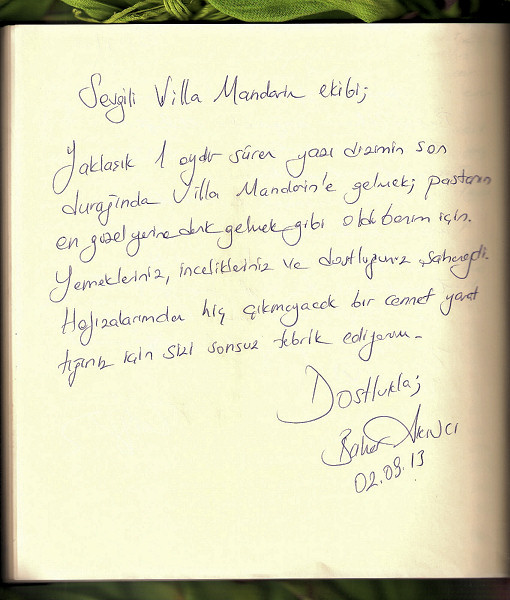 Sevgili Villa Mandarin ekibi;
Yaklaşık 1 aydır süren yazı dizimin son
durağında Villa Mandarin'e gelmek; pastanın
en güzel yerine denk gelmek gibi oldu benim için.
Yemekleriniz, incelikleriniz ve dostluğunuz şahaneydi.
Hafızalarımdan hiç çıkmayacak bir cennet yarat
tığınız için sizi sonsuz tebrik ediyorum.
Dostlukla;
Bahar Akıncı
02.09.13